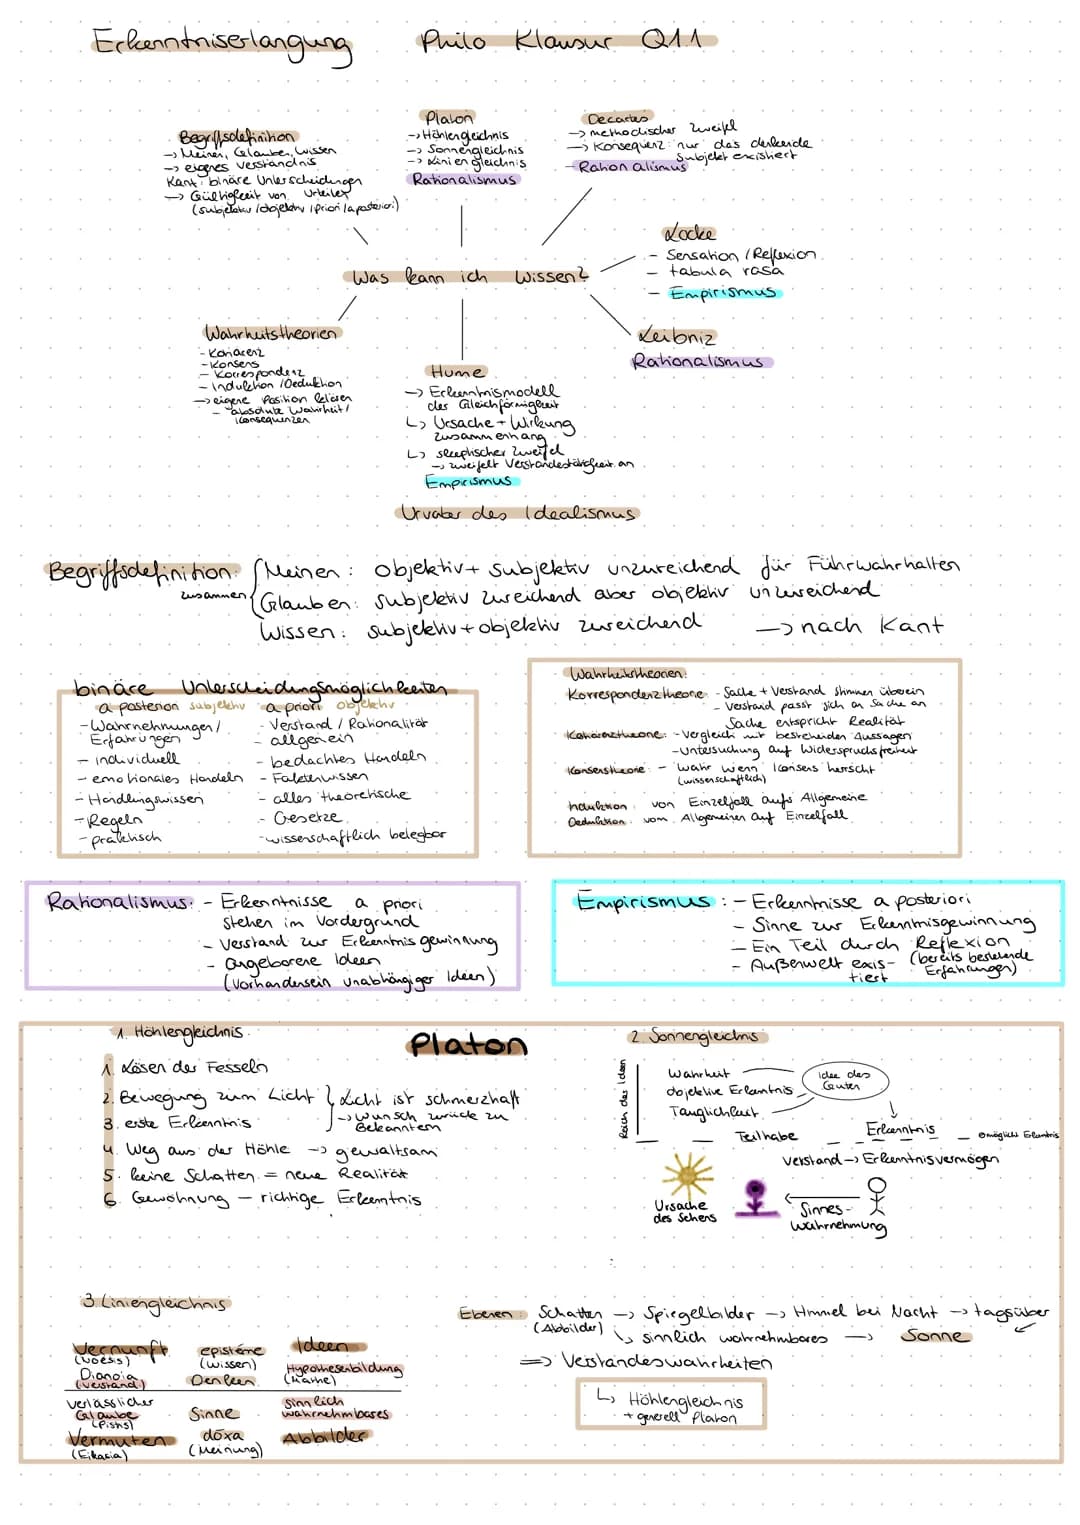 Erkenntniserlangung Philo Klausur Q1.1
Begriffsdefinition
-> Meinen, Glaube, Wissen
-> eigenes Verständnis
Kant: binäre Unterscheidungen
-> Gültigkeit von Urteilen
(subjektiv / objektiv / priori / a posteriori)
Platon
-> Höhlengleichnis
-> Sonnengleichnis
-> Liniengleichnis
Rationalismus
Decartes
-> methodischer Zweifel
-> Konsequenz: nur das denkende
Subjekt existiert
- Rationalismus
Locke
- Sensation / Reflexion
- tabula rasa
- Empirismus
Was kann ich Wissen?
Leibniz
Rationalismus
Wahrheitstheorien
- Kohärenz
- Konsens
- Korrespondenz
- Induktion / Deduktion
-> eigene Position klären
- absolute Wahrheit /
Konsequenzen
Hume
-> Erkenntnismodell
der Gleichförmigkeit
↳ Ursache + Wirkung
zusammenhang
↳ skeptischer Zweifel
-> zweifelt Verstandestätigkeit an
Empirismus
Urvater des Idealismus
Begriffsdefinition: Meinen: objektiv + subjektiv unzureichend für Führwahrhalten
zusammen Glauben: subjektiv zureichend aber objektiv unzureichend
Wissen: subjektiv + objektiv zureichend -> nach Kant
binäre Unterscheidungsmöglichkeiten
a posteriori subjektiv
- Wahrnehmungen /
Erfahrungen
- individuell
- emotionales Handeln
- Handlungswissen
- Regeln
- praktisch
a priori objektiv
- Verstand / Rationalität
- allgemein
- bedachtes Handeln
- Faktenwissen
- alles theoretische
- Gesetze
- wissenschaftlich belegbar
Wahrheitstheorien:
Korrespondenztheorie: - Sache + Verstand stimmen überein
- Verstand passt sich an Sache an
Sache entspricht Realität
Kohärenztheorie: - Vergleich mit bestehenden Aussagen
- Untersuchung auf Widerspruchsfreiheit
Konsenstheorie: - wahr wenn Konsens herrscht
(wissenschaftlich)
Induktion: von Einzelfall aufs Allgemeine
Deduktion: vom Allgemeinen auf Einzelfall
Rationalismus: - Erkenntnisse a priori
stehen im Vordergrund
- Verstand zur Erkenntnisgewinnung
- angeborene Ideen
(Vorhandensein unabhängiger Ideen)
Empirismus: - Erkenntnisse a posteriori
- Sinne zur Erkenntnisgewinnung
- Ein Teil durch Reflexion
(bereits bestehende
Erfahrungen)
- Außenwelt exis-
tiert
Platon
1. Höhlengleichnis
1. Lösen der Fesseln
2. Bewegung zum Licht
3. erste Erkenntnis
Licht ist schmerzhaft
-> Wunsch zurück zu
Bekanntem
4. Weg aus der Höhle -> gewaltsam
5. keine Schatten = neue Realität
6. Gewöhnung - richtige Erkenntnis
2. Sonnengleichnis
Reich der Ideen
Wahrheit
objektive Erkenntnis
Tauglichkeit
Idee des
Guten
Teilhabe
Erkenntnis
mögliche Erkenntnis
Verstand -> Erkenntnisvermögen
Ursache
des Sehens
Sinnes-
Wahrnehmung
3. Liniengleichnis
Vernunft
(Noesis)
epistéme
(Wissen)
Ideen
Dianoia
(Verstand)
Denken
Hypothesenbildung
(Mathe)
verlässlicher
Glaube
(Pistis)
Sinne
sinnlich
wahrnehmbares
Vermuten
(Eikasia)
doxa
(Meinung)
Abbilder
Ebenen: Schatten -> Spiegelbilder -> Himmel bei Nacht -> tagsüber
(Abbilder) ↳ sinnlich wahrnehmbares -> Sonne
=> Verstandeswahrheiten
↳ Höhlengleichnis
+ generell Platon